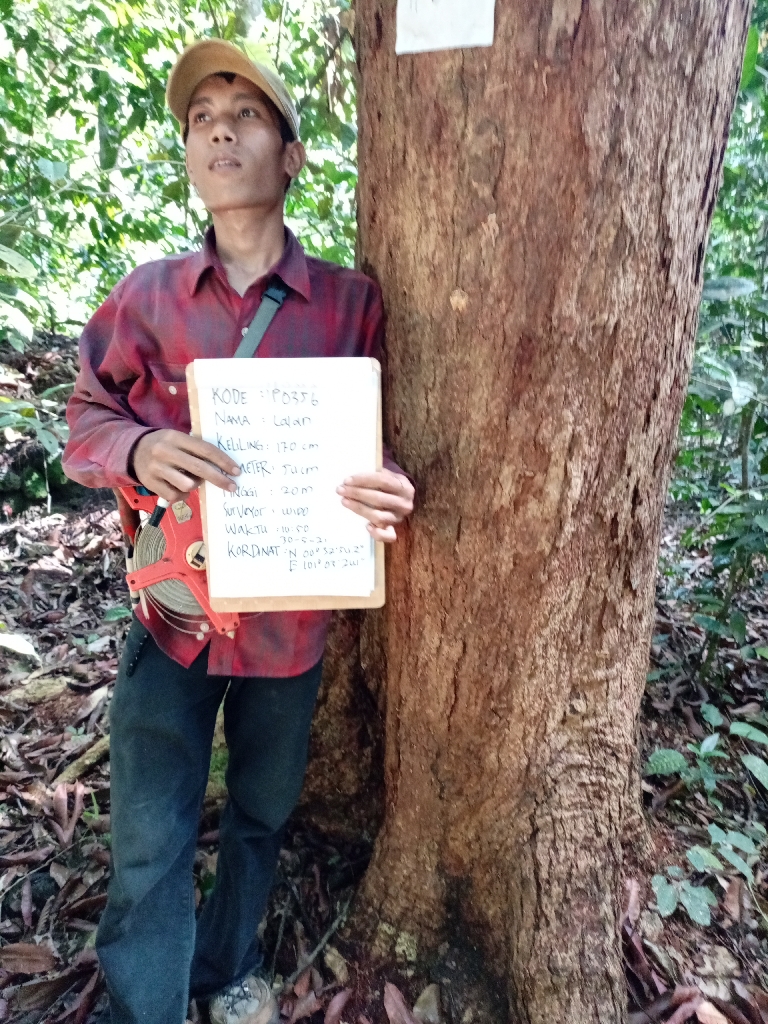 KODE : P0356
NAMA : Lalan
KELILING : 170 cm
METER : 54 cm
TINGGI : 20 m
SURVEYOR : WIDO
WAKTU : 10:50
30-5-21
KORDINAT : N 00° 32' 50.2"
E 101° 03'